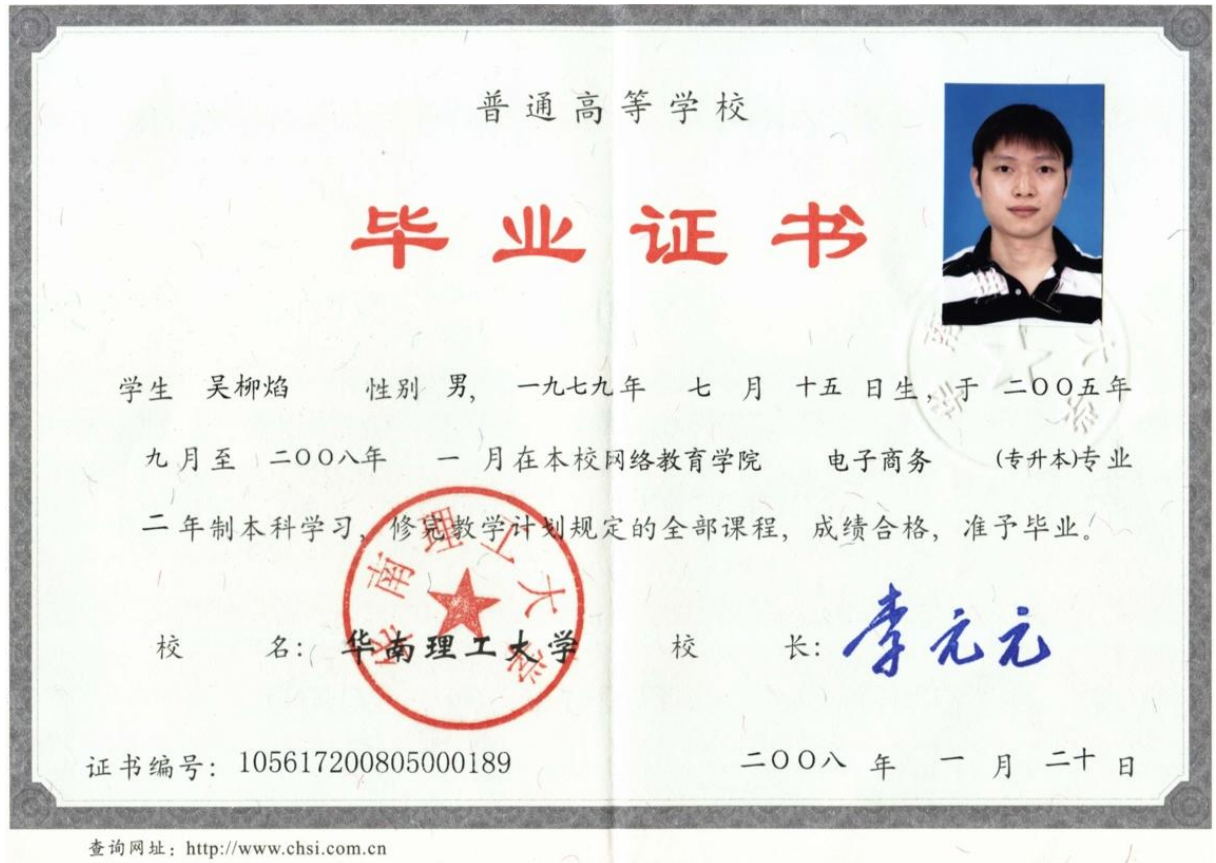 普通高等学校
毕业证书
学生 吴柳焰 性别 男, 一九七九年 七 月 十五 日生, 于 二〇〇五年
九月至 二〇〇八年 一 月在本校网络教育学院 电子商务 (专升本)专业
二 年制本科学习, 修完教学计划规定的全部课程, 成绩合格, 准予毕业。
校 名: 华南理工大学 校 长: 李元元
华南理工大学
证书编号: 105617200805000189 二〇〇八 年 一 月 二十 日
查询网址: http://www.chsi.com.cn